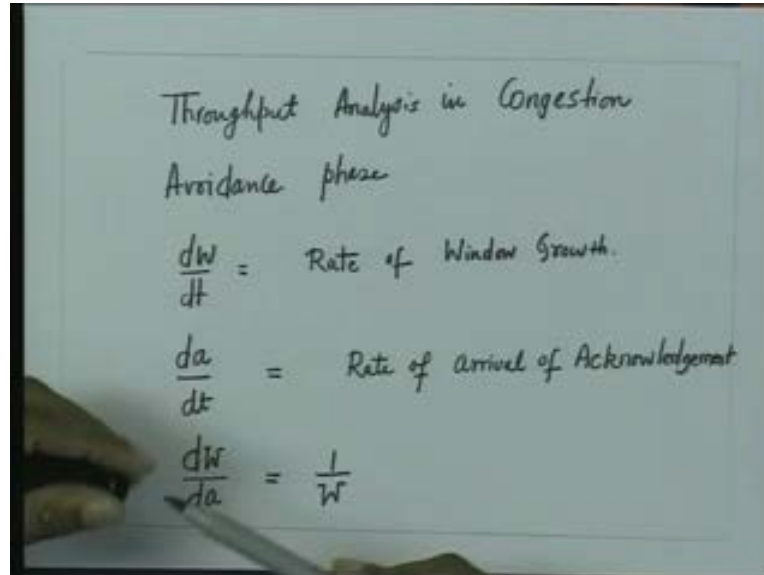 Throughput Analysis in Congestion
Avoidance phase
dW/dt = Rate of Window Growth.
da/dt = Rate of arrival of Acknowledgement
dW/da = 1/W